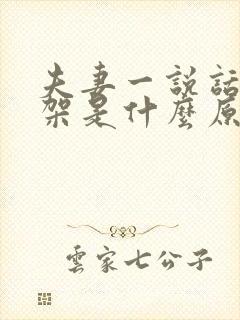 夫妻一説話
架是什麼原
雲家七公子